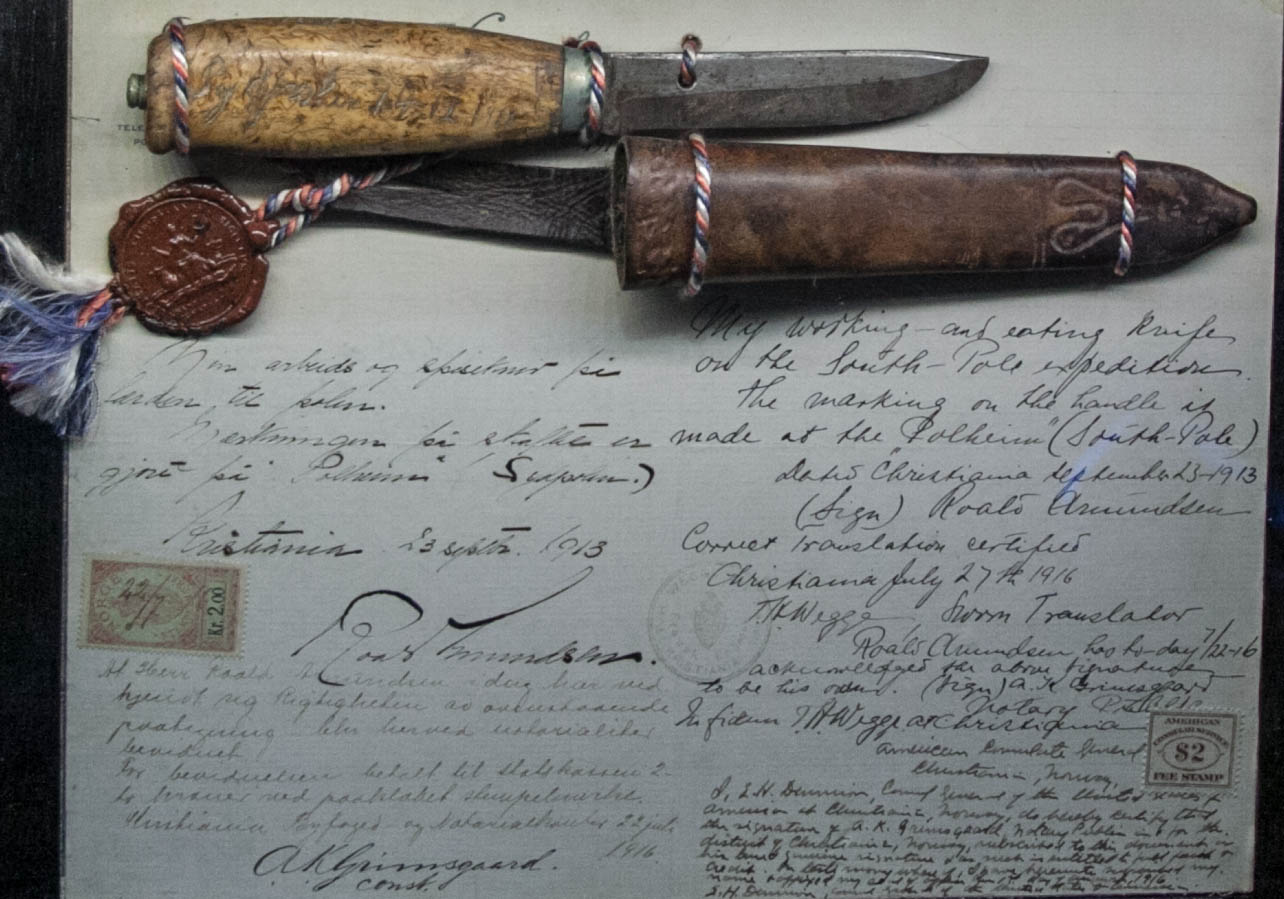 TELE
Min arbeids og spisekniv på
færden til polen.
Merkningen på skaftet er
gjort på "Polheim" (Sydpolen.)
Kristiania 23 septbr. 1913
Roald Amundsen.
NORGE
22/7
Kr. 2.00
At Herr Roald Amundsen i dag har ved
kjendt sig Rigtigheten av ovenstaaende
paategning blir herved notarialiter
bevidnet.
For bevidnelsen betalt til statskassen 2-
to kroner ved paaklæbet stempelmerke.
Kristiania Byfoged- og Notarialkontor 22 juli
1916
A.K. Grimsgaard.
const.
My working- and eating knife
on the South-Pole expedition.
The marking on the handle is
made at the "Polheim" (South-Pole)
Dated Christiania September 23-1913
(Sign) Roald Amundsen
Correct Translation certified
Christiania July 27th 1916
T.H. Wegge Sworn Translator
Roald Amundsen has to-day 7/22-16
acknowledged the above signature
to be his own. (Sign) A. K. Grimsgaard
Notary Public
In fidem T.H. Wegge at Christiania
American Consulate General
Christiania, Norway,
AMERICAN
CONSULAR SERVICE
$2
FEE STAMP
I, E.H. Dennison, Consul General of the United States of
America at Christiania, Norway, do hereby certify that
the signature of A. K. Grimsgaard, Notary Public in & for the
district of Christiania, Norway, subscribed to this document is
his true & genuine signature & as such is entitled to full faith &
credit. In testimony whereof, I have hereunto subscribed my
name & affixed my seal of office this day of 1916
E.H. Dennison, Consul General of the United States